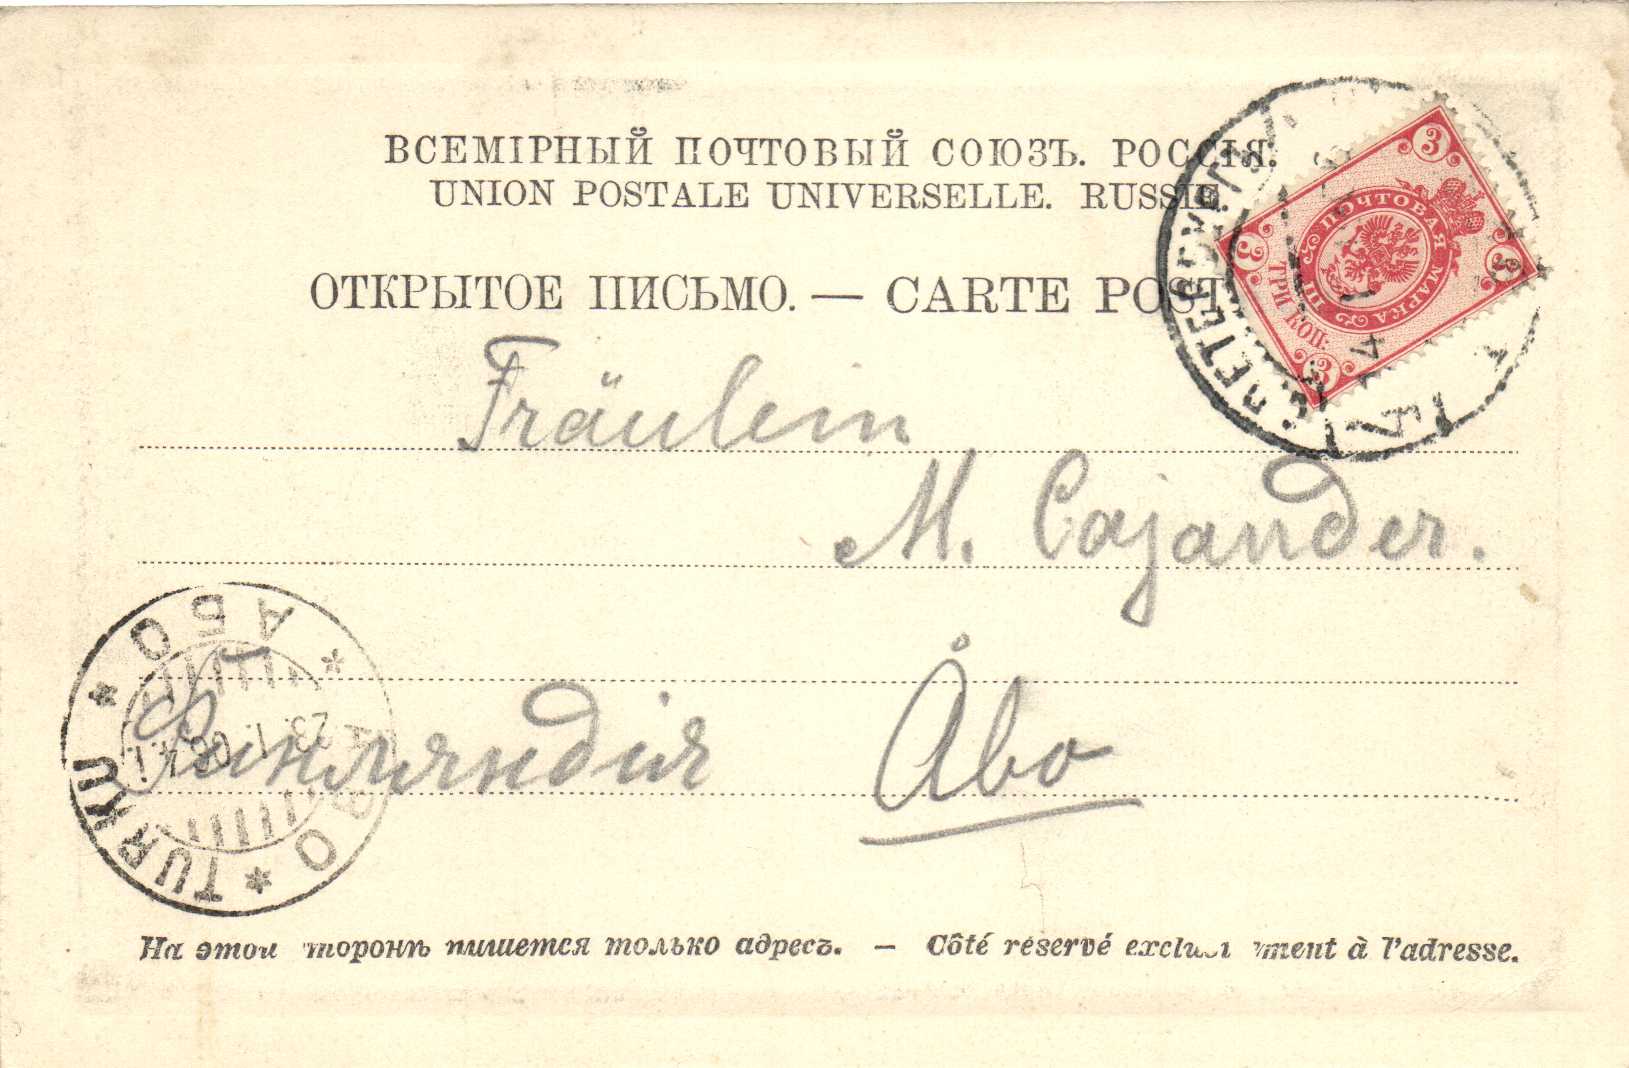 ВСЕМІРНЫЙ ПОЧТОВЫЙ СОЮЗЪ. РОССІЯ.
UNION POSTALE UNIVERSELLE. RUSSIE.
ОТКРЫТОЕ ПИСЬМО. — CARTE POST
3
3
3
3
ПОЧТОВАЯ МАРКА
ТРИ КОП.
С.ПЕТЕРБУРГЪ
Fräulein
M. Cajander.
Финляндія Åbo
АБО
TURKU
ÅBO
23.I.
На этой сторонѣ пишется только адресъ. — Côté réservé exclusivement à l'adresse.